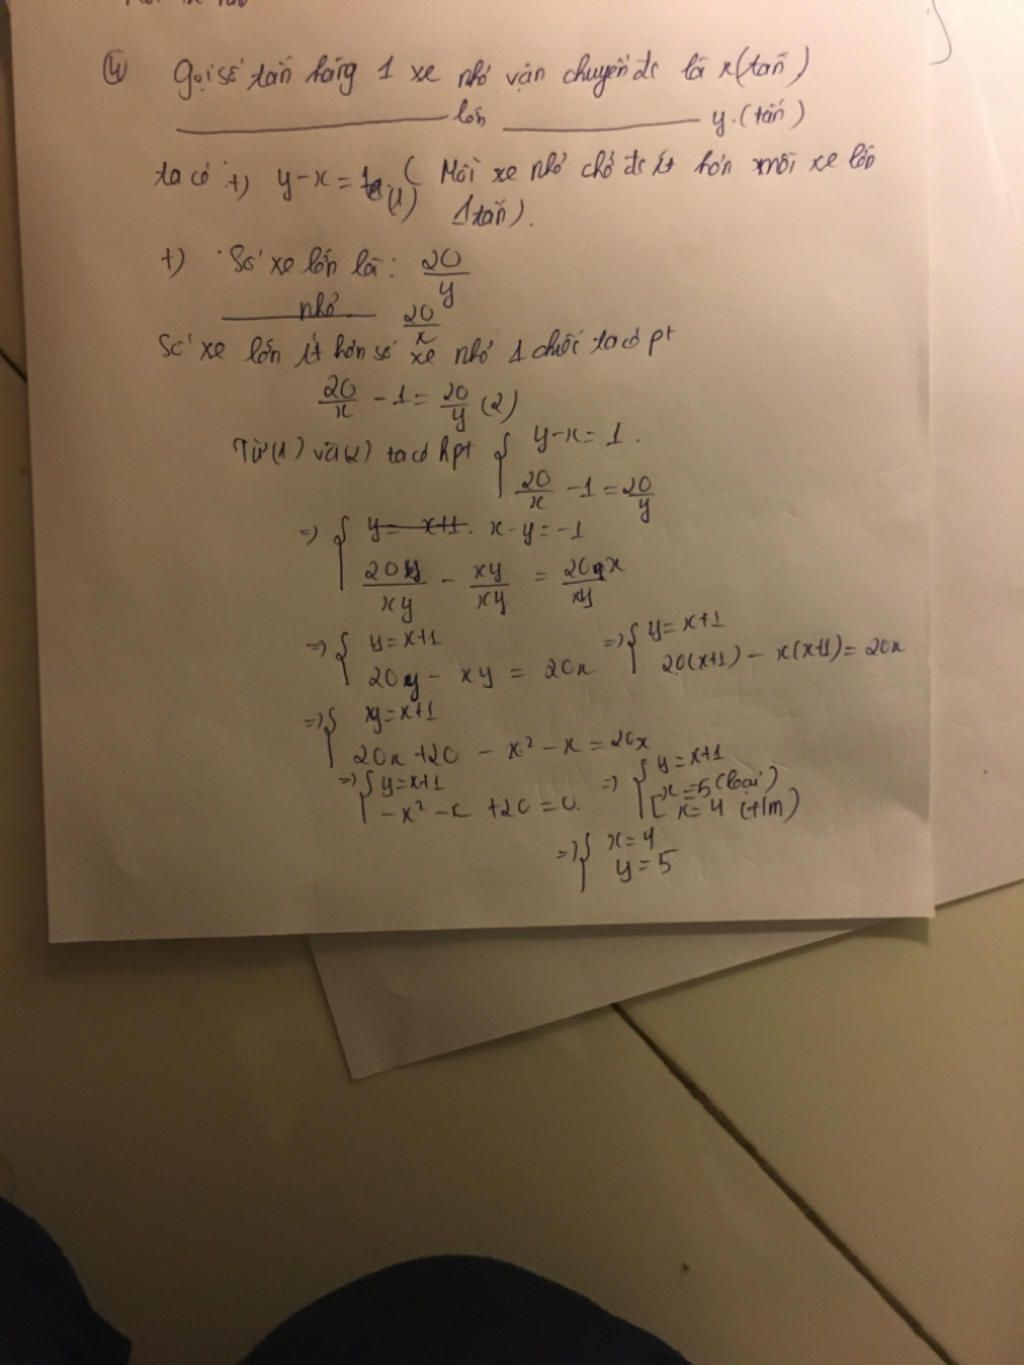 ④ Gọi số tấn hàng 1 xe nhỏ vận chuyển đc là x (tấn)
lớn y. (tấn)
ta có +) y - x = 1 (1) ( Mỗi xe nhỏ chở đc ít hơn mỗi xe lớn
1 tấn).
+) Số xe lớn là : 20/y
nhỏ 20/x
Số xe lớn ít hơn số xe nhỏ 1 chiếc ta có pt
20/x - 1 = 20/y (2)
Từ (1) và (2) ta có hpt { y - x = 1 .
20/x - 1 = 20/y
=> { y = x+1. x - y = -1
20y/xy - xy/xy = 20x/xy
=> { y = x+1 => { y = x+1
20y - xy = 20x 20(x+1) - x(x+1) = 20x
=> { y = x+1
20x + 20 - x² - x = 20x
=> { y = x+1 => { y = x+1
- x² - x + 20 = 0. [ x = 5 (loại)
x = 4 (t/m)
=> { x = 4
y = 5